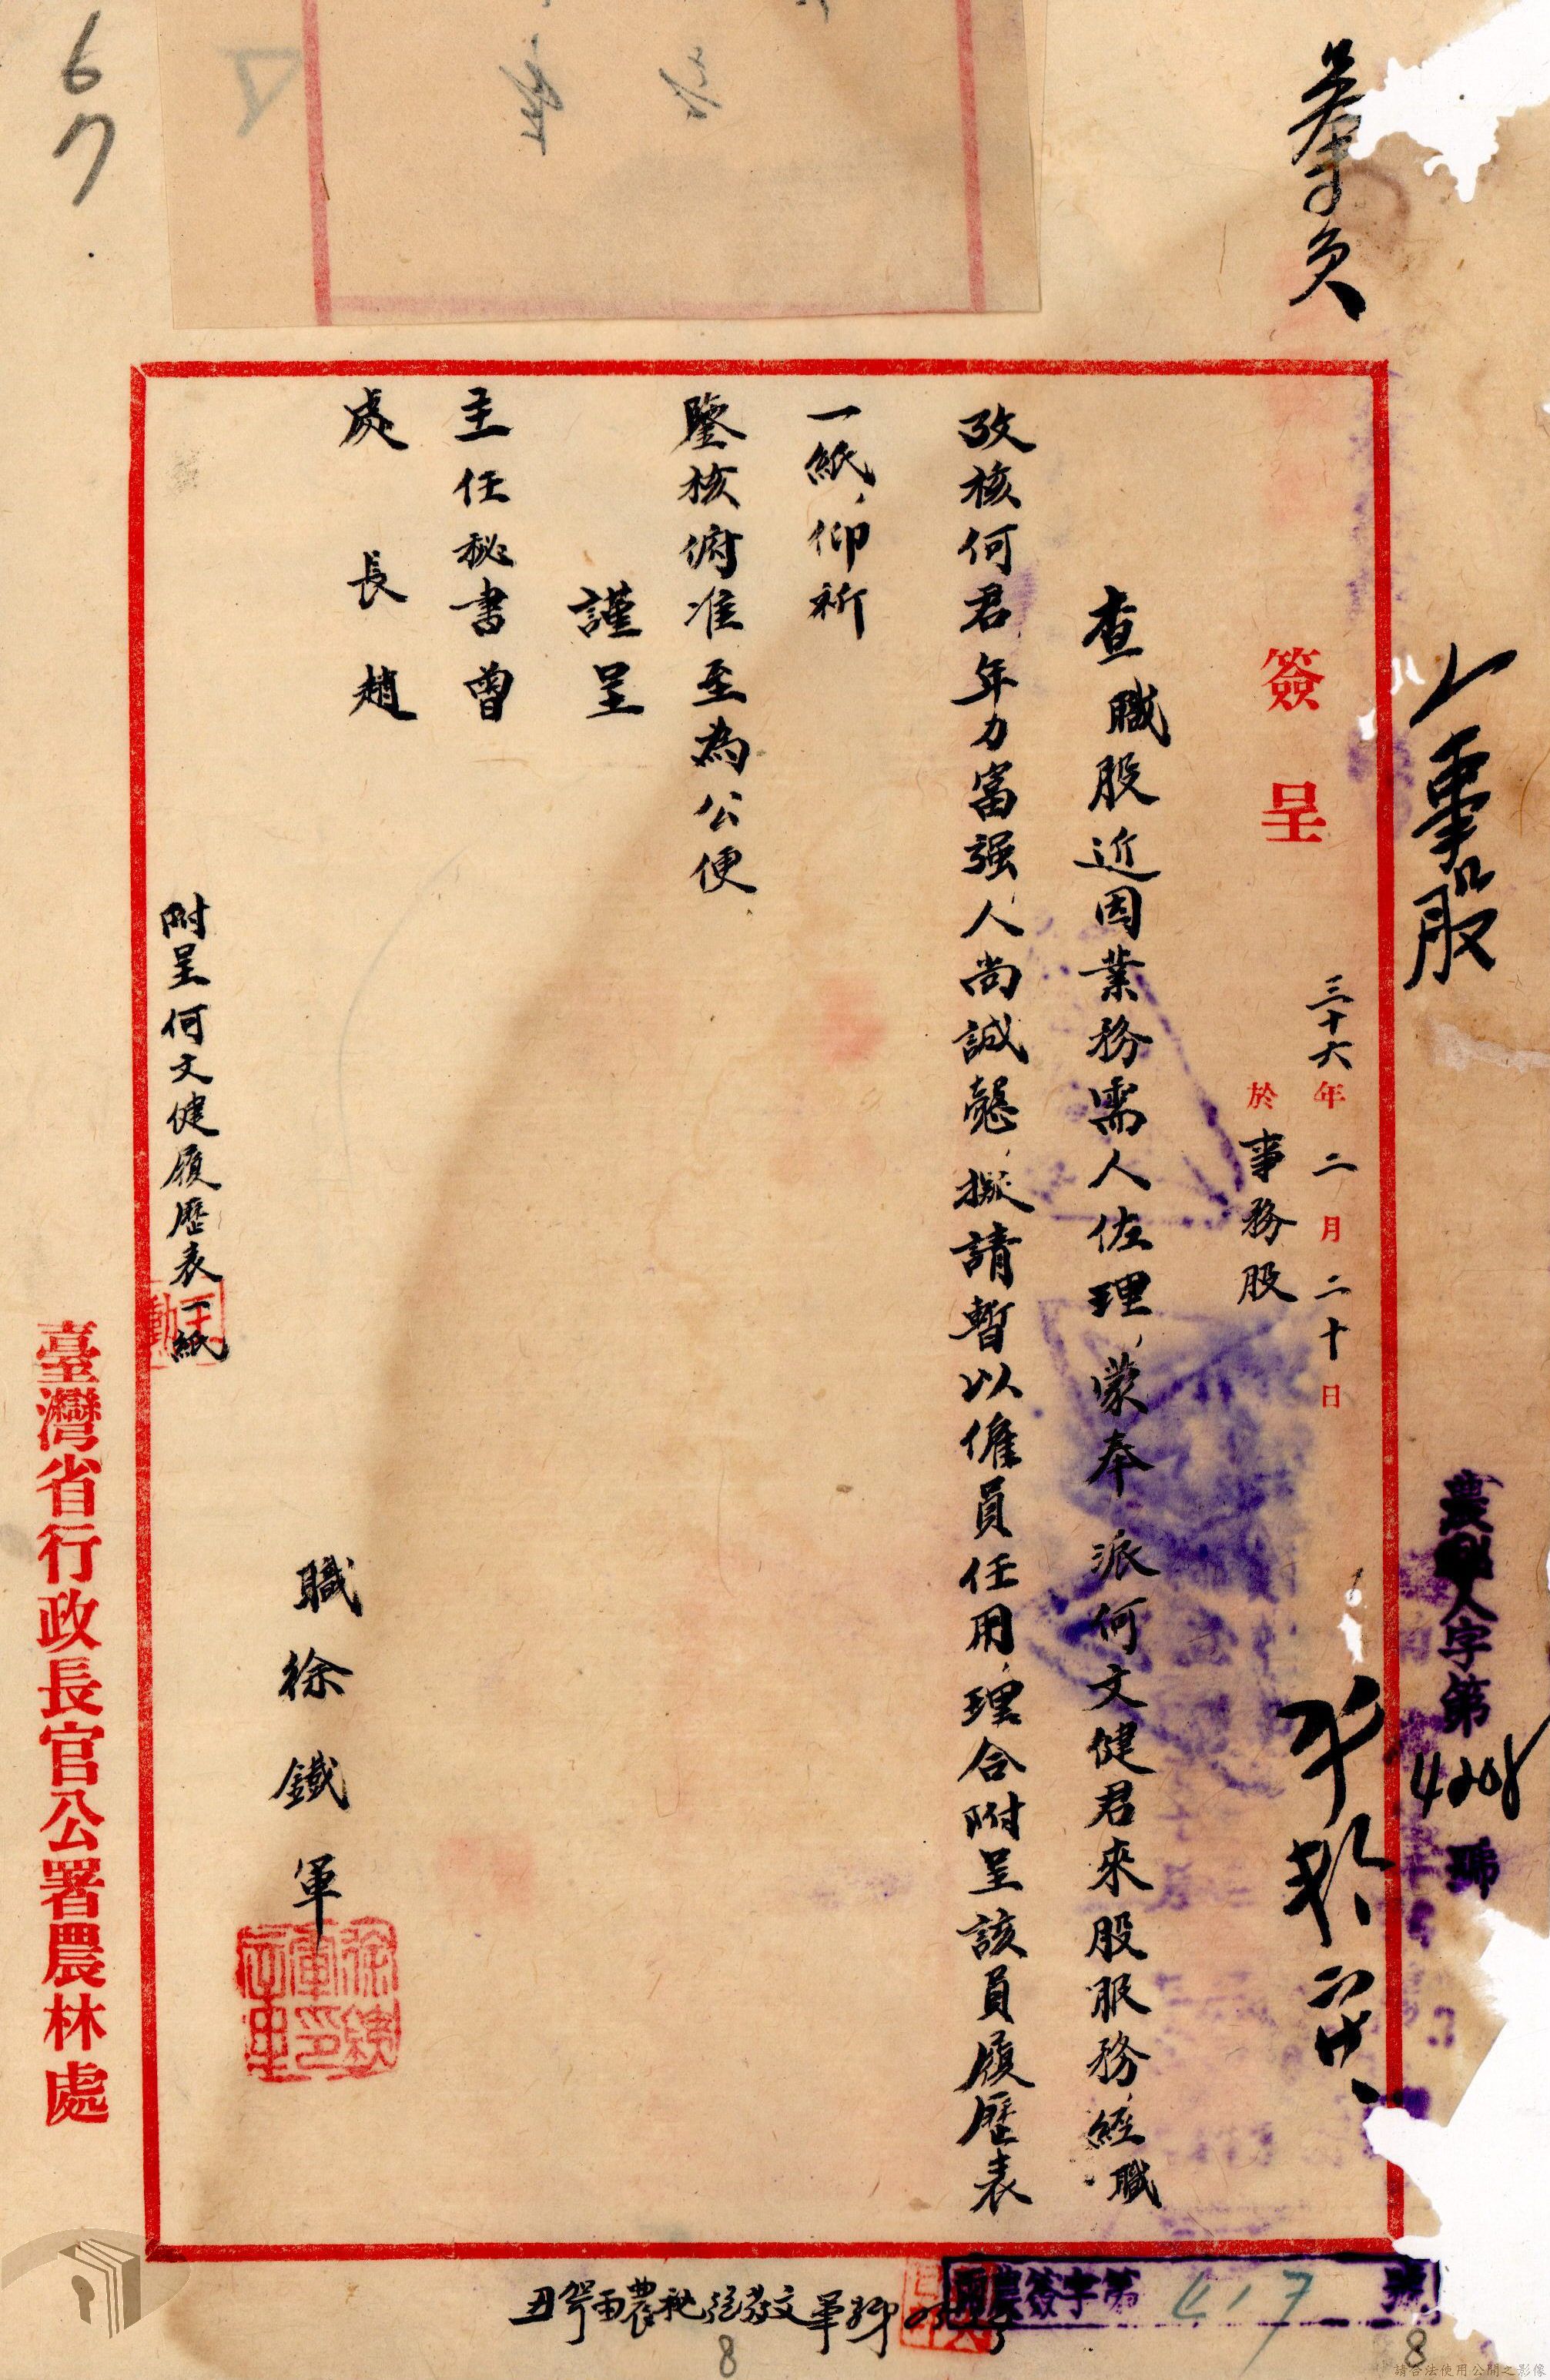 簽呈
三十六年二月二十日
於事務股
查職股近因業務需人佐理,蒙奉派何文健君來股服務,經職
攷核何君年力富强,人尚誠懇,擬請暫以僱員任用,理合附呈該員履歷表
一紙,仰祈
鑒核俯准至為公便
謹呈
主任秘書曾
處長趙
職徐鐵軍
附呈何文健履歷表一紙
臺灣省行政長官公署農林處
人事股
人字第4208號
農簽字第417號
67
8
8
請合法使用公開之影像